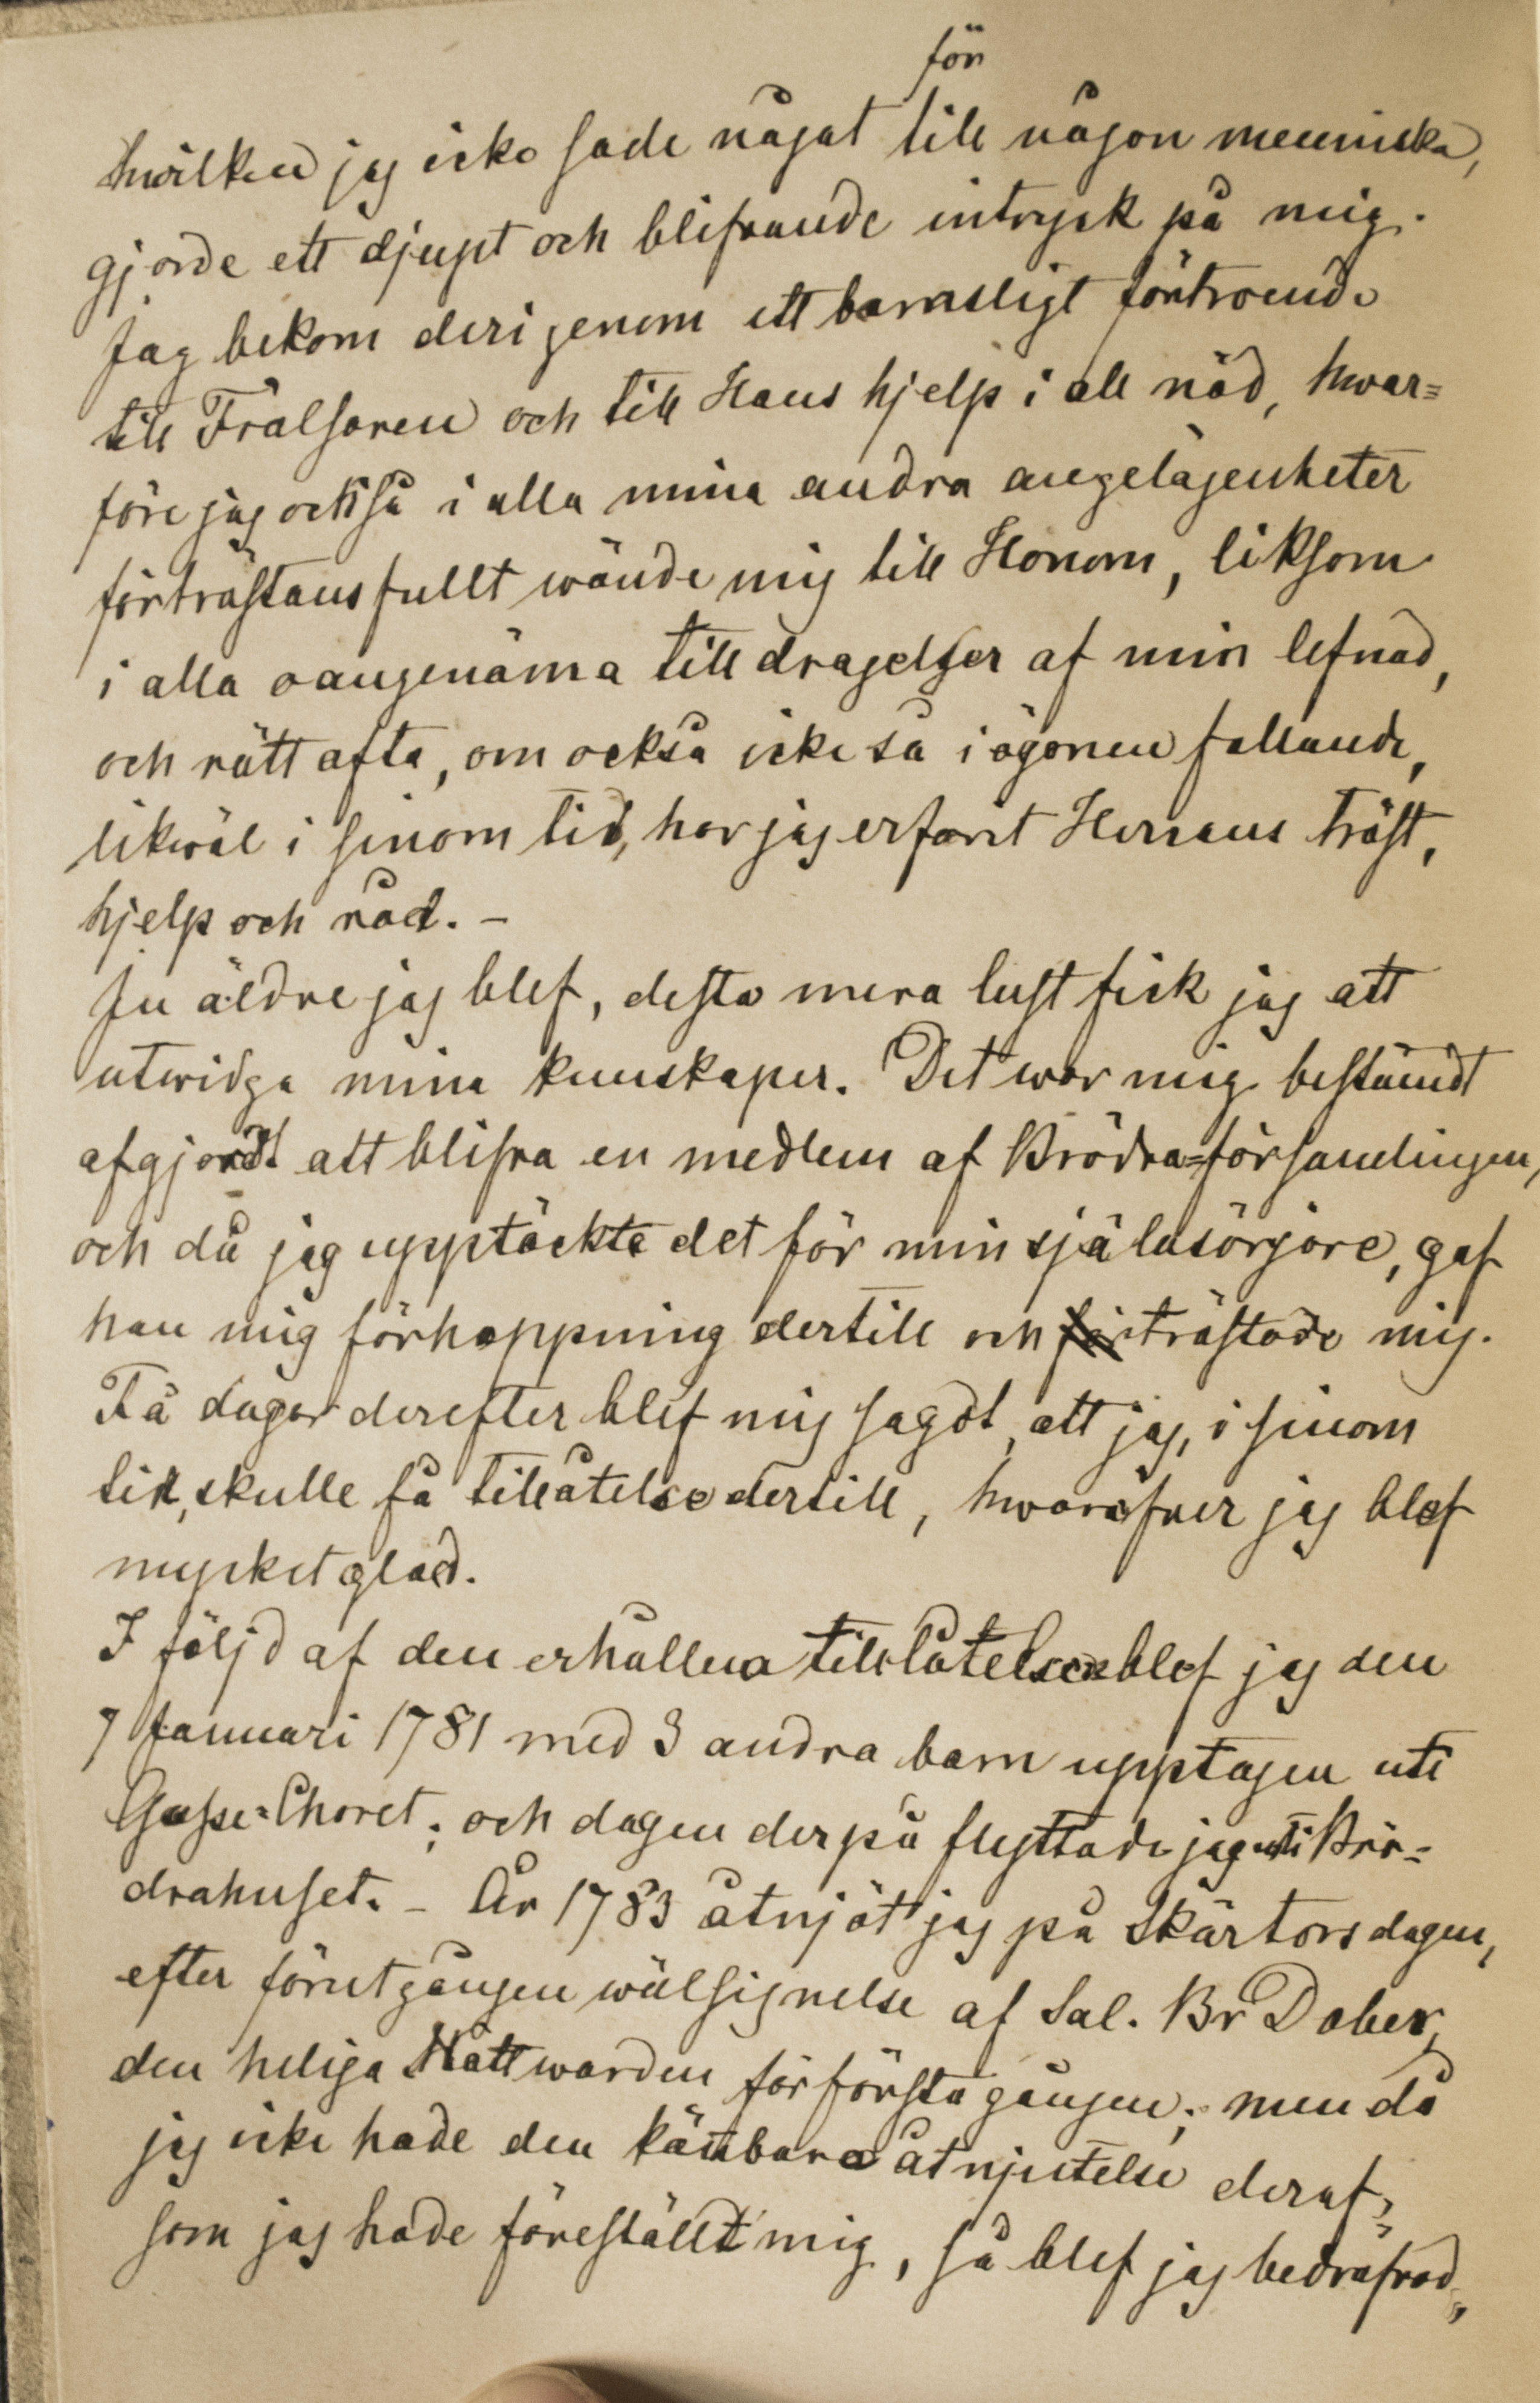 för
hwilken jag icke sade något till någon menniska,
gjorde ett djupt och blifvande intryck på mig.
Jag bekom derigenom ett barnsligt förtroende
till Frälsaren och till Hans hjelp i all nöd, hwar=
före jag också i alla mina andra angelägenheter
förtröstansfullt wände mig till Honom, liksom
i alla oangenäma tilldragelser af min lefnad,
och rätt ofta, om också icke så i ögonen fallande,
likwäl i sinom tid, har jag erfarit Herrans tröst,
hjelp och råd. –
Ju äldre jag blef, desto mera lust fick jag att
utwidga mina kunskaper. Det war mig bestämdt
afgjordt att blifva en medlem af Brödra=församlingen,
och då jag upptäckte det för min själasörjare, gaf
han mig förhoppning dertill och tröstade mig.
Få dagar derefter blef mig sagdt, att jag, i sinom
tid, skulle få tillåtelse dertill, hwaröfver jag blef
mycket glad.
I följd af den erhållna tillåtelsen blef jag den
7 Januari 1781 med 3 andra barn upptagen uti
Gosse=Choret; och dagen derpå flyttade jag uti Brö=
drahuset. – År 1783 åtnjöt jag på Skärtorsdagen,
efter förutgången wälsignelse af Sal. Br Dober,
den heliga Nattwarden för första gången; men då
jag icke hade den kännbara åtnjutelse deraf,
som jag hade föreställt mig, så blef jag bedröfvad,